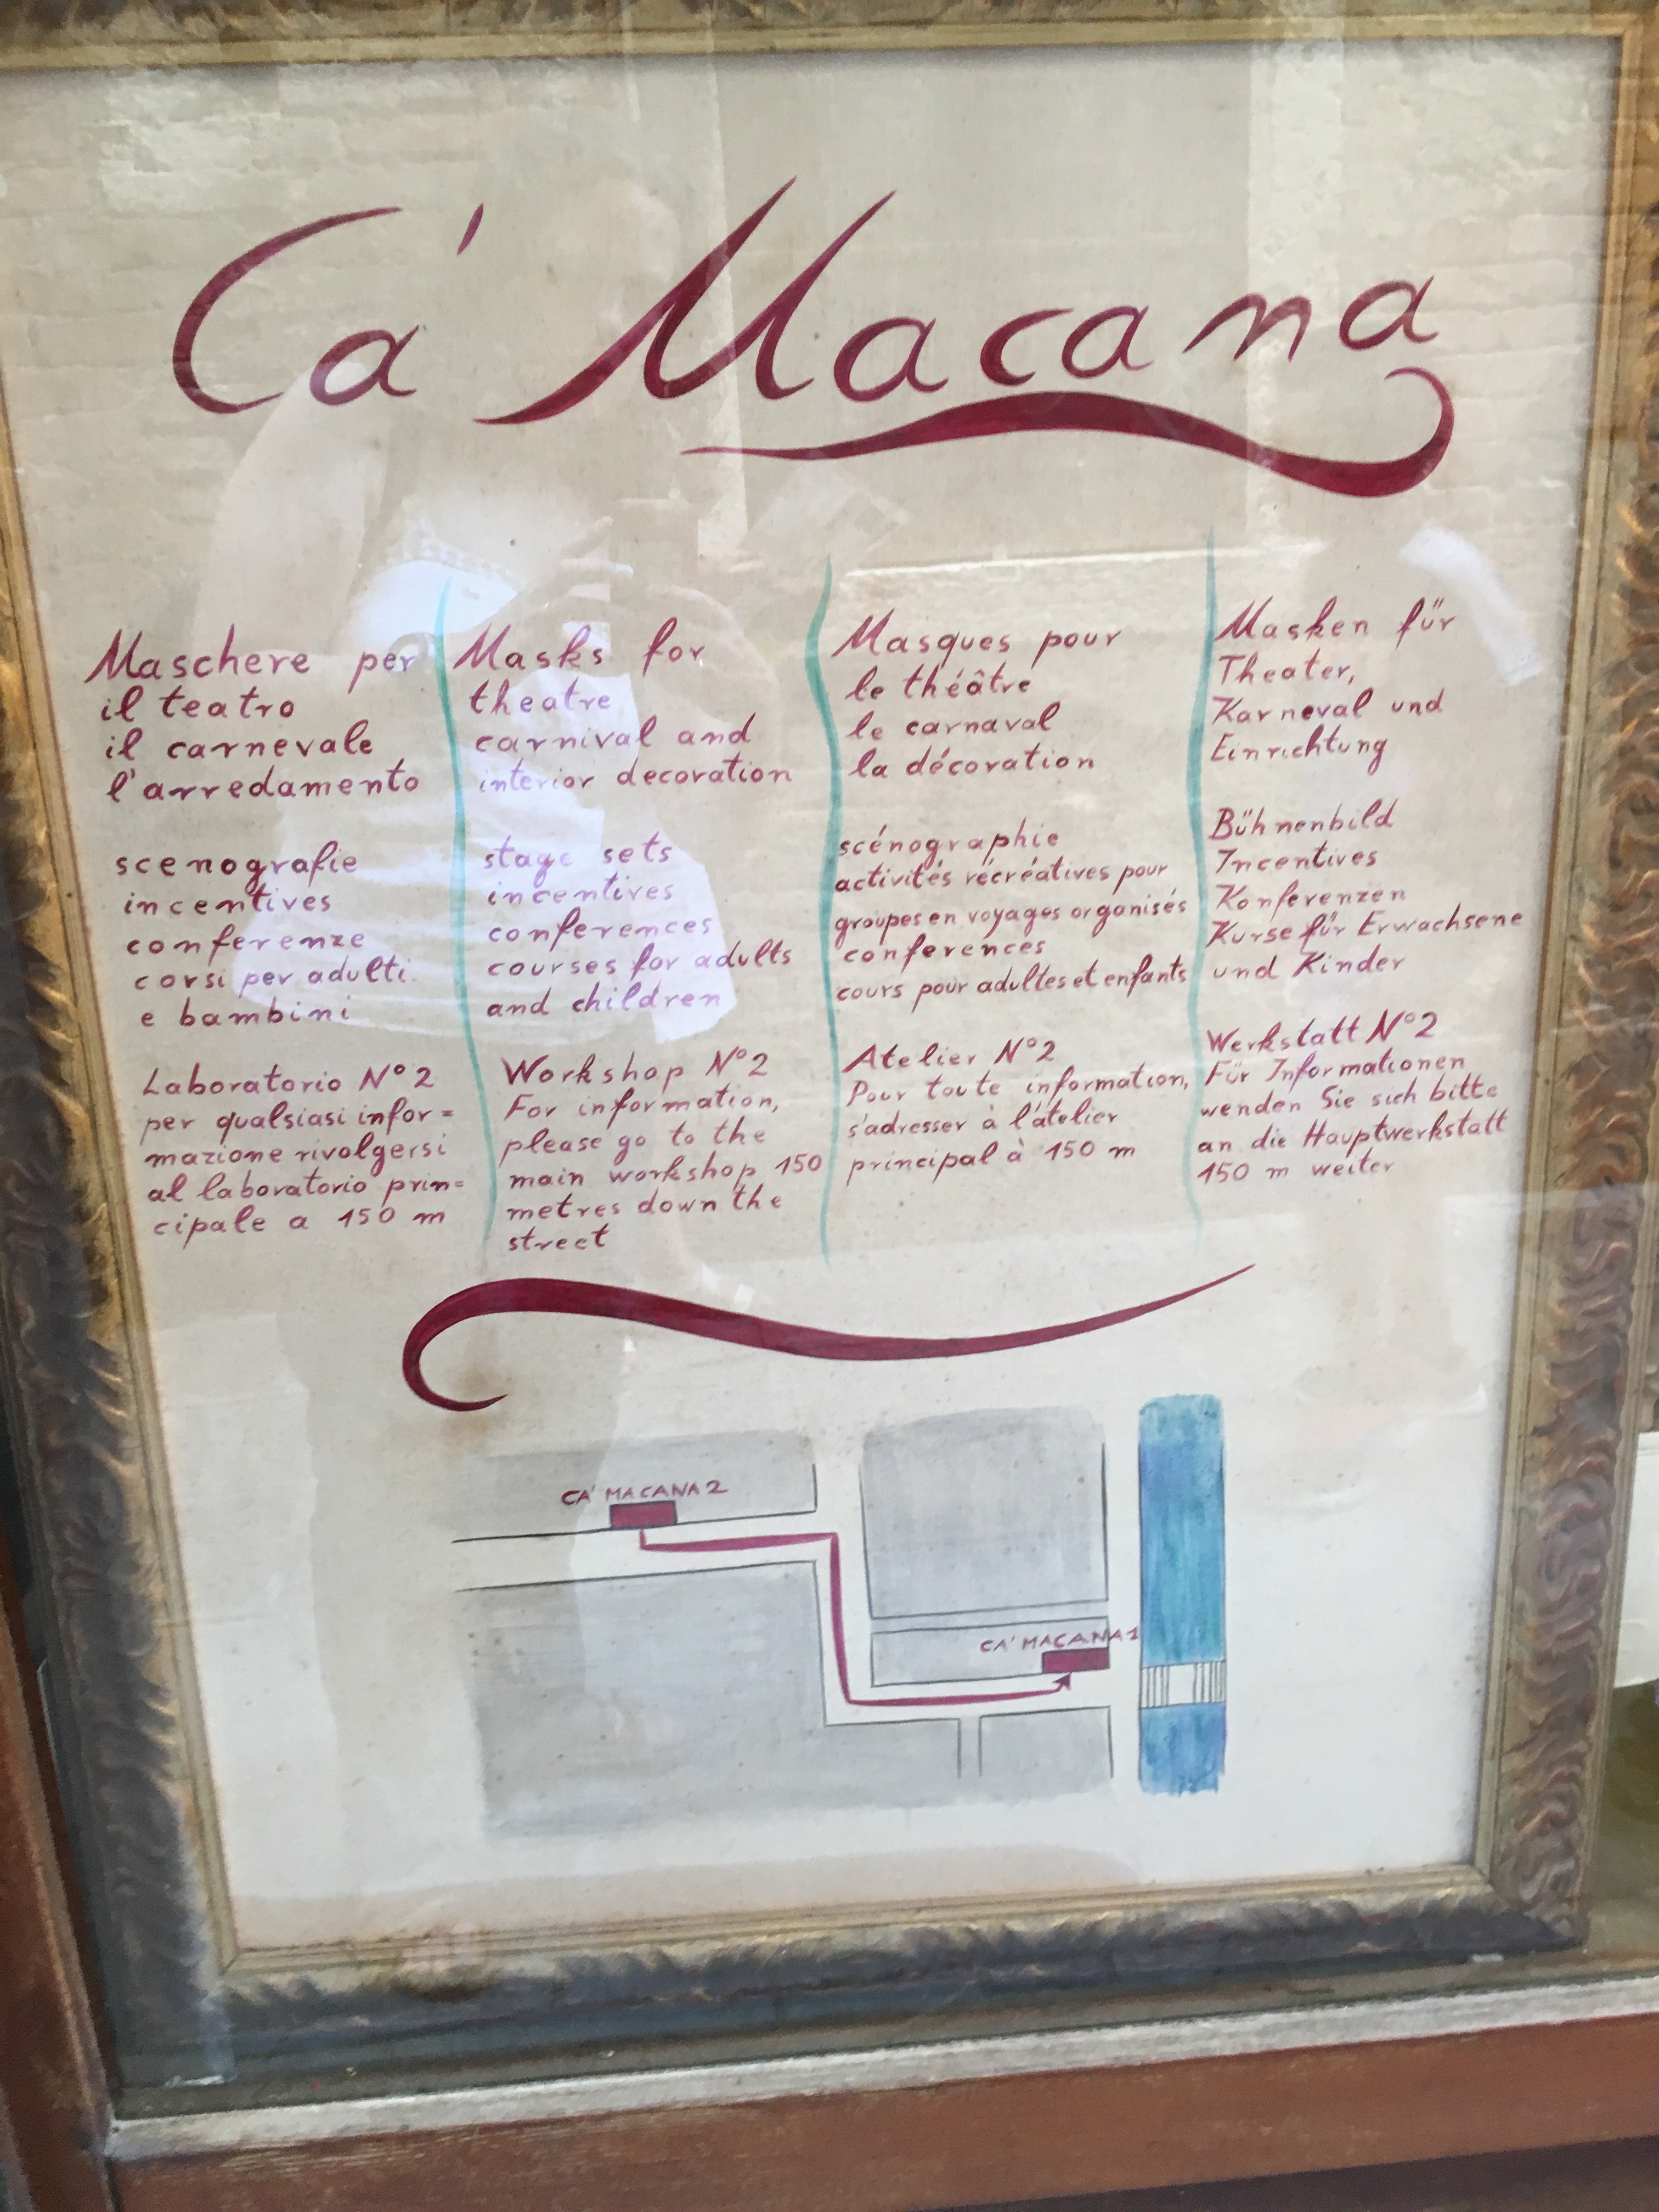 Ca' Macana
Maschere per
il teatro
il carnevale
l'arredamento
scenografie
incentives
conferenze
corsi per adulti
e bambini
Laboratorio N° 2
per qualsiasi infor=
mazione rivolgersi
al laboratorio prin=
cipale a 150 m
Masks for
theatre
carnival and
interior decoration
stage sets
incentives
conferences
courses for adults
and children
Workshop N° 2
For information,
please go to the
main workshop 150
metres down the
street
Masques pour
le théâtre
le carnaval
la décoration
scénographie
activités récréatives pour
groupes en voyages organisés
conferences
cours pour adultes et enfants
Atelier N° 2
Pour toute information,
s'adresser à l'átelier
principal à 150 m
Masken für
Theater,
Karneval und
Einrichtung
Bühnenbild
Incentives
Konferenzen
Kurse für Erwachsene
und Kinder
Werkstatt N° 2
Für Informationen
wenden Sie sich bitte
an die Hauptwerkstatt
150 m weiter
CA' MACANA 2
CA' MACANA 1